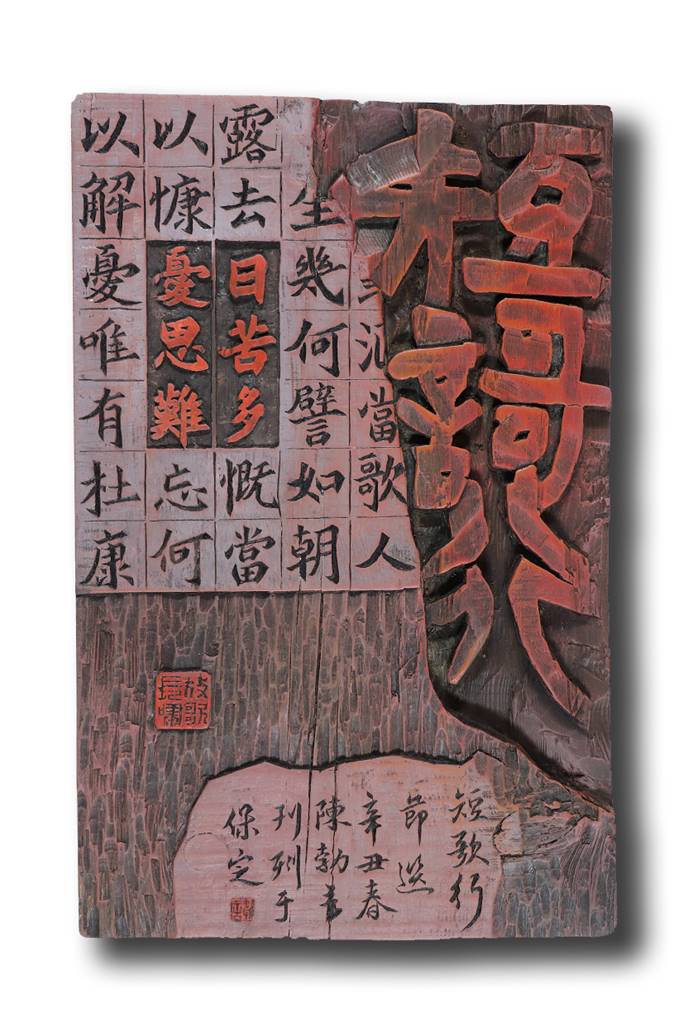 短謌行
酒當歌人
生幾何譬如朝
露去日苦多慨當
以慷憂思難忘何
以解憂唯有杜康
放歌長嘯
短歌行
節选
辛丑春
陳勃書
刊刻于
保定